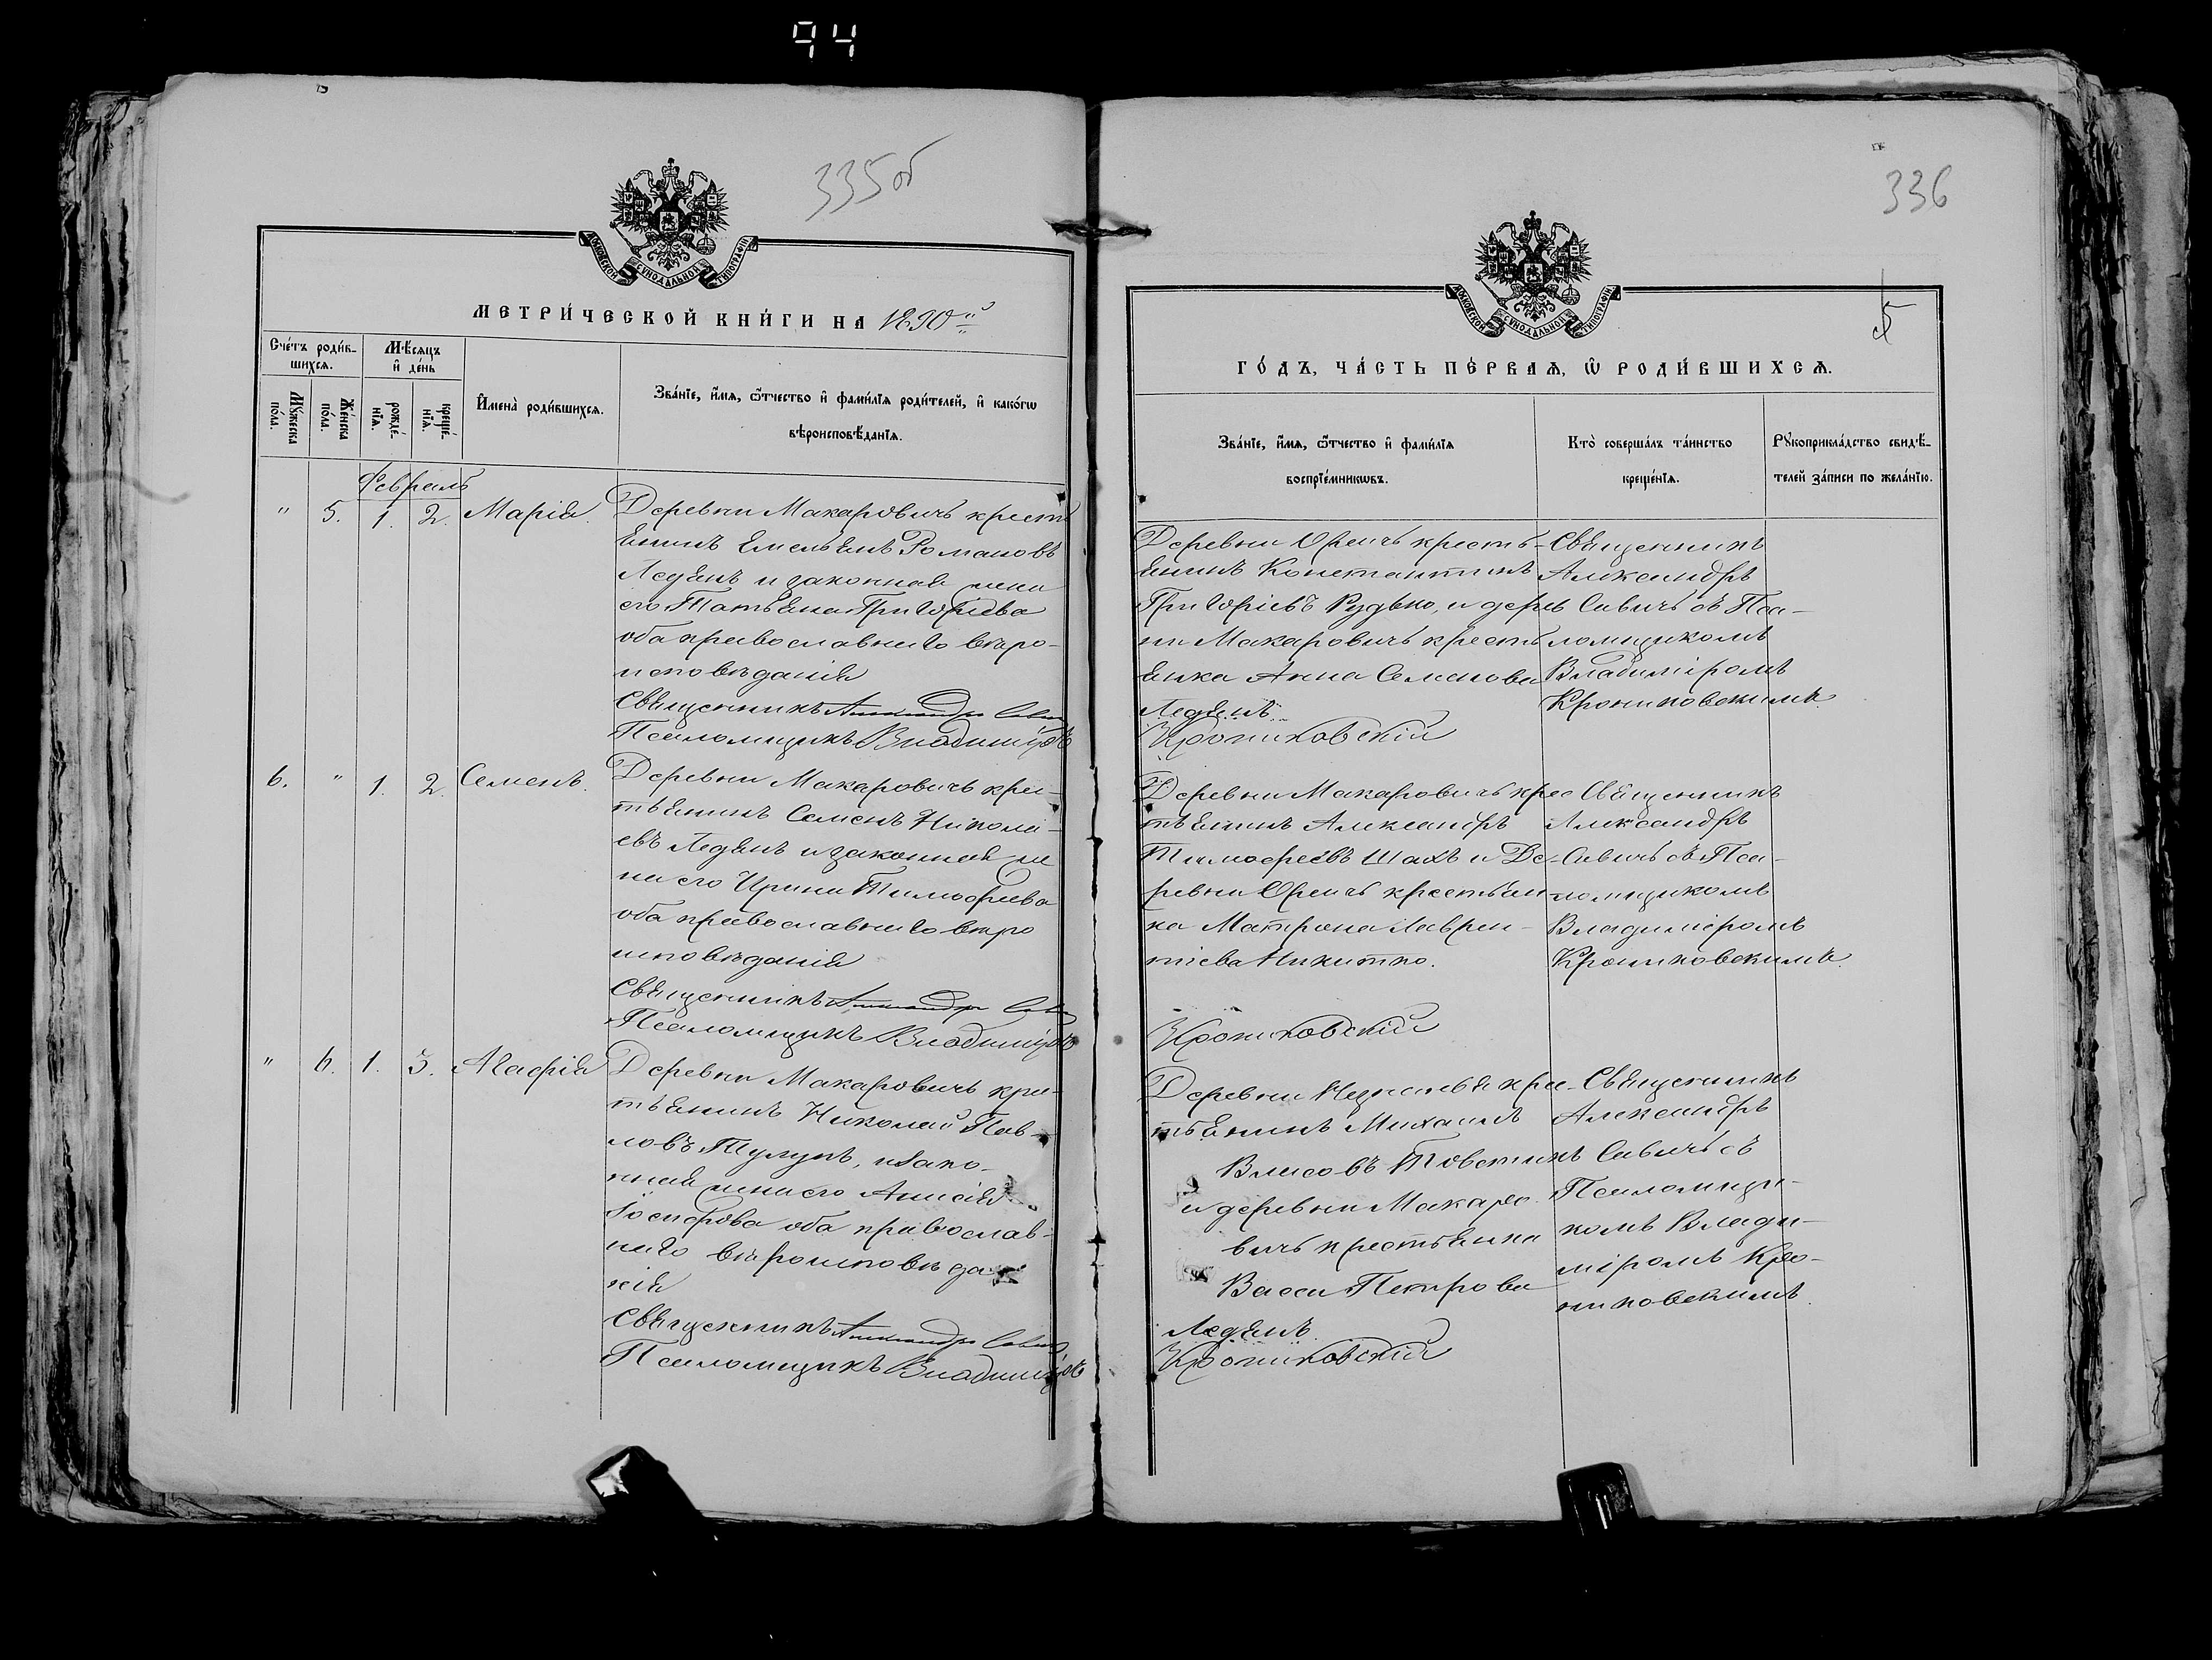 94
335об
МОСКОВСКОЙ СУНОДАЛЬНОЙ ТИПОГРАФІИ
МЕТРИ́ЧЕСКОЙ КНИ́ГИ НА 1890й
Сче́тъ роди́вшихся.
Мѣ́сяцъ и҆ де́нь
Му́жеска по́ла.
Же́нска по́ла.
рожде́нїя.
креще́нїя.
И҆мена̀ роди́вшихся.
Зва́нїе, и҆́мя, ѻ҆́тчество и҆ фами́лїя роди́телей, и҆ како́гѡ
вѣроисповѣ́данїя.
Февраль
" 5. 1. 2. Марія.
Деревни Макаровичъ кресть
янинъ Емельянъ Романовъ
Ледянъ и законная жена
его Татьяна Григоріева
оба православнаго вѣро-
исповѣданія
Священникъ Александръ Савичъ
Псаломщикъ Владиміръ
6. " 1. 2. Семенъ.
Деревни Макаровичъ крес-
тьянинъ Семенъ Никола-
евъ Ледянъ и законная же
на его Ирина Тимофеева
оба православнаго вѣро
исповѣданія
Священникъ Александръ Савичъ
Псаломщикъ Владиміръ
" 6. 1. 3. Агафія
Деревни Макаровичъ крес-
тьянинъ Николай Пав-
ловъ Тулупъ, и зако-
нная жена его Анисія
Іосифова оба православ-
наго вѣроисповѣда
нія
Священникъ Александръ Савичъ
Псаломщикъ Владиміръ
336
5
МОСКОВСКОЙ СУНОДАЛЬНОЙ ТИПОГРАФІИ
ГО́ДЪ, ЧА́СТЬ ПЕ́РВАЯ, Ѡ҆ РОДИ́ВШИХСЯ.
Зва́нїе, и҆́мя, ѻ҆́тчество и҆ фами́лїя
воспрїе́мникѡвъ.
Кто̀ соверша́лъ та́инство
креще́нїя.
Рꙋкоприкла́дство свидѣ́-
телей за́писи по жела́нїю.
Деревни Оречъ кресть-
янинъ Константинъ
Григоріевъ Рудько, и дерев
ни Макаровичъ кресть
янка Анна Семенова
Ледянъ
Крониковскій
Священникъ
Александръ
Савичъ съ Пса-
ломщикомъ
Владиміромъ
Крониковскимъ.
Деревни Макаровичъ крес
тьянинъ Александръ
Тимофеевъ Шахъ и Де-
ревни Оречъ крестьян-
ка Матрона Лаврен-
тіева Никитко.
Крониковскій
Священникъ
Александръ
Савичъ съ Пса-
ломщикомъ
Владиміромъ
Крониковскимъ.
крес-
тьянинъ Михаилъ
Власовъ Товстикъ
и деревни Макаро
вичъ крестьянка
Васса Петрова
Ледянъ.
Крониковскій
Священникъ
Александръ
Савичъ съ
Псаломщи-
комъ Влади-
міромъ Кро-
никовскимъ.